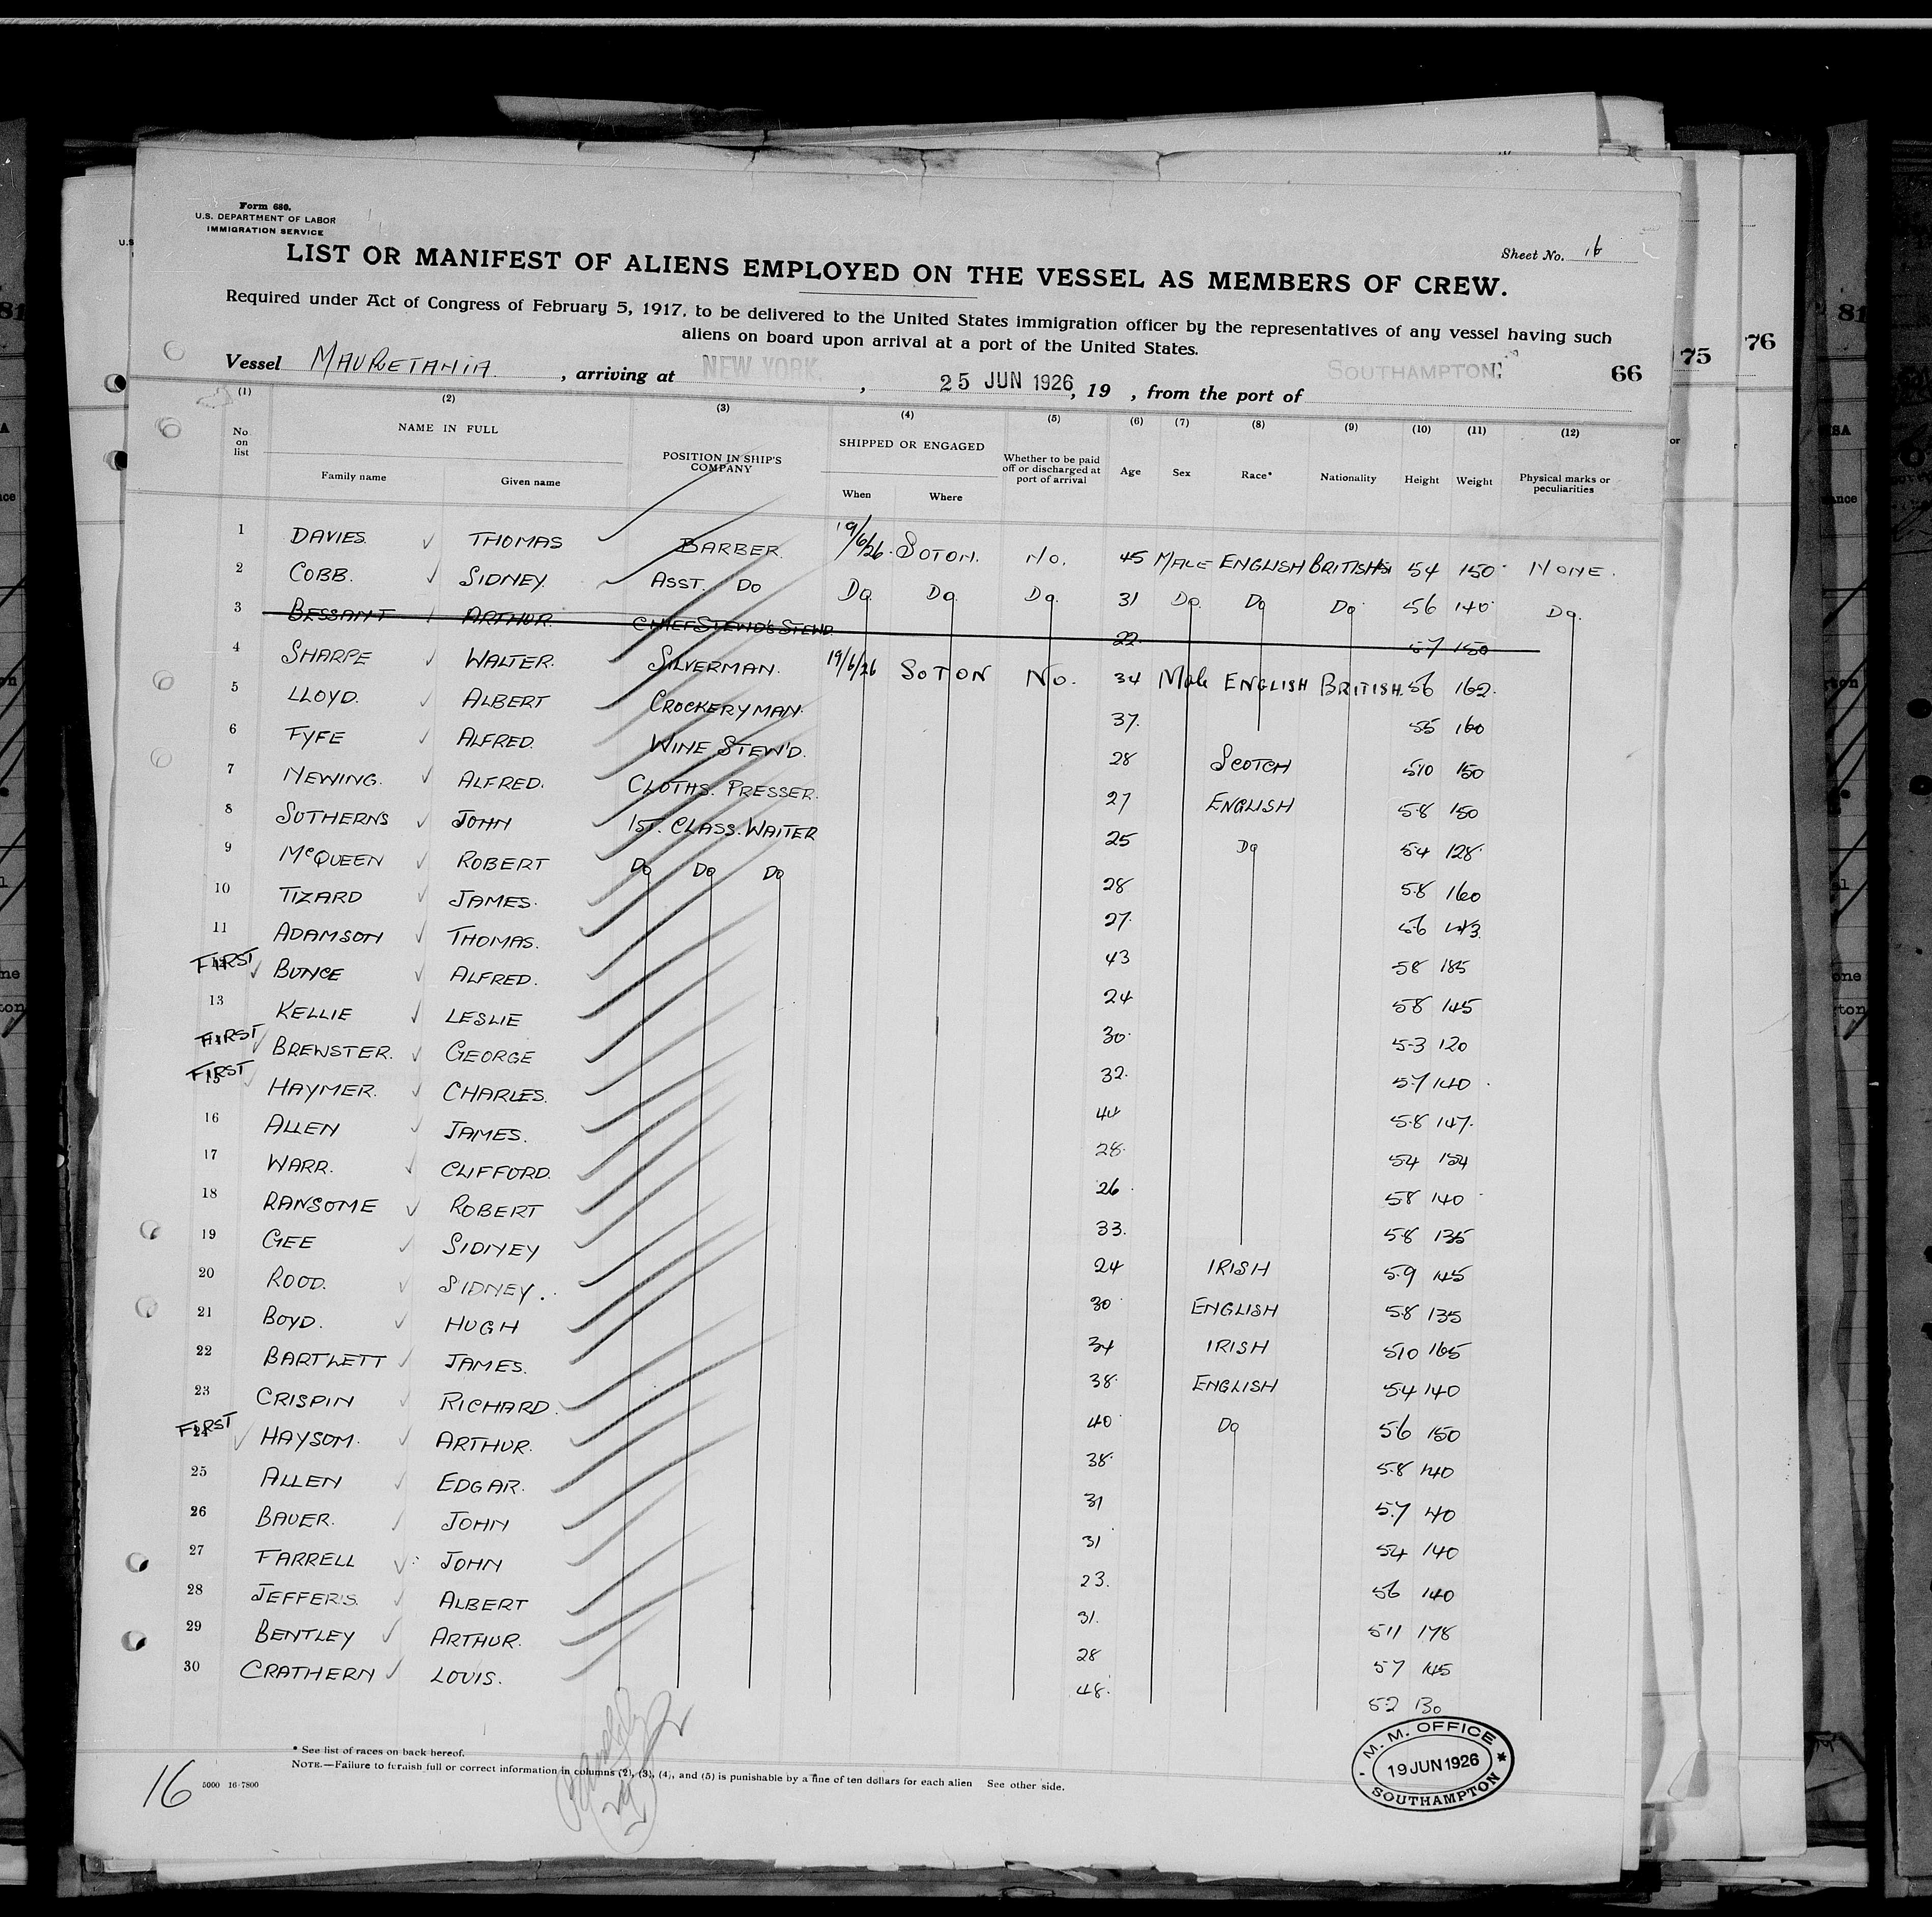 Form 680.
U.S. DEPARTMENT OF LABOR
IMMIGRATION SERVICE
Sheet No. 16
LIST OR MANIFEST OF ALIENS EMPLOYED ON THE VESSEL AS MEMBERS OF CREW.
Required under Act of Congress of February 5, 1917, to be delivered to the United States immigration officer by the representatives of any vessel having such
aliens on board upon arrival at a port of the United States.
Vessel MAURETANIA, arriving at NEW YORK, 25 JUN 1926, 19 , from the port of SOUTHAMPTON
66 75 76 81
(1) (2) (3) (4) (5) (6) (7) (8) (9) (10) (11) (12)
No on list NAME IN FULL Family name Given name POSITION IN SHIP'S COMPANY SHIPPED OR ENGAGED When Where Whether to be paid off or discharged at port of arrival Age Sex Race* Nationality Height Weight Physical marks or peculiarities
1 DAVIES. THOMAS BARBER. 19/6/26. SOTON. No. 45 MALE ENGLISH BRITISH 54 150 NONE.
2 COBB. SIDNEY. ASST. DO Do Do. Do. 31 Do. Do Do 56 140 Do.
3 BESSANT ARTHUR. CHIEF STEWD'S STEWD. 22 57 150
4 SHARPE WALTER. SILVERMAN. 19/6/26 SOTON No. 34 Male ENGLISH BRITISH. 56 162.
5 LLOYD. ALBERT CROCKERYMAN. 37. 55 160
6 FYFE ALFRED. WINE STEW'D. 28 SCOTCH 510 150
7 NEWING. ALFRED. CLOTHS. PRESSER. 27 ENGLISH 58 150
8 SUTHERNS JOHN 1ST. CLASS. WAITER 25 Do 54 128
9 McQUEEN ROBERT Do Do Do 28 58 160
10 TIZARD JAMES. 27. 56
11 ADAMSON THOMAS. 43 58 185
FIRST 12 BUNCE ALFRED. 24 58 145
13 KELLIE LESLIE 30. 5-3 120
FIRST 14 BREWSTER. GEORGE 32. 57 140
FIRST 15 HAYMER. CHARLES. 44 58 147.
16 ALLEN JAMES. 28. 54 154
17 WARR. CLIFFORD. 26 58 140
18 RANSOME ROBERT 33. 58 135
19 GEE SIDNEY 24 IRISH 59 145
20 ROOD. SIDNEY. 30 ENGLISH 58 135
21 BOYD. HUGH 34 IRISH 510 165
22 BARTLETT JAMES. 38. ENGLISH 54 140
23 CRISPIN RICHARD. 40 Do 56 150
FIRST 24 HAYSOM. ARTHUR. 38. 58 140
25 ALLEN EDGAR. 31 5.7 140
26 BAUER. JOHN 31 54 140
27 FARRELL JOHN 23. 56 140
28 JEFFERIS. ALBERT 31. 511 178
29 BENTLEY ARTHUR. 28 57 145
30 CRATHERN LOUIS. 48. 52 130
* See list of races on back hereof.
NOTE.—Failure to furnish full or correct information in columns (2), (3), (4), and (5) is punishable by a fine of ten dollars for each alien See other side.
16 5000 16-7800
M. M. OFFICE
19 JUN 1926
SOUTHAMPTON